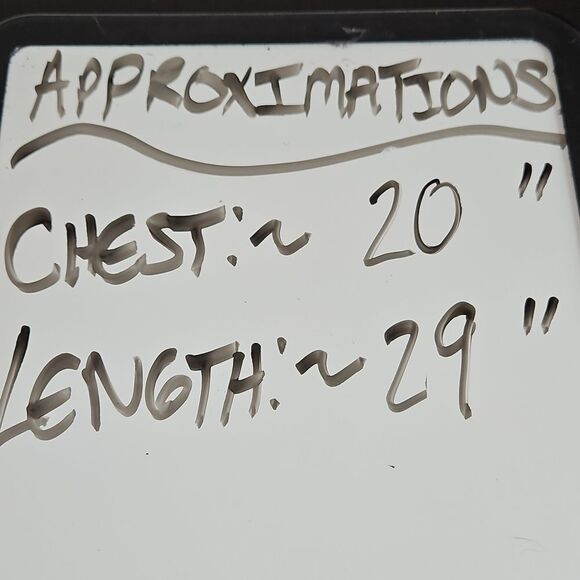 APPROXIMATIONS
CHEST:~ 20"
LENGTH:~29"